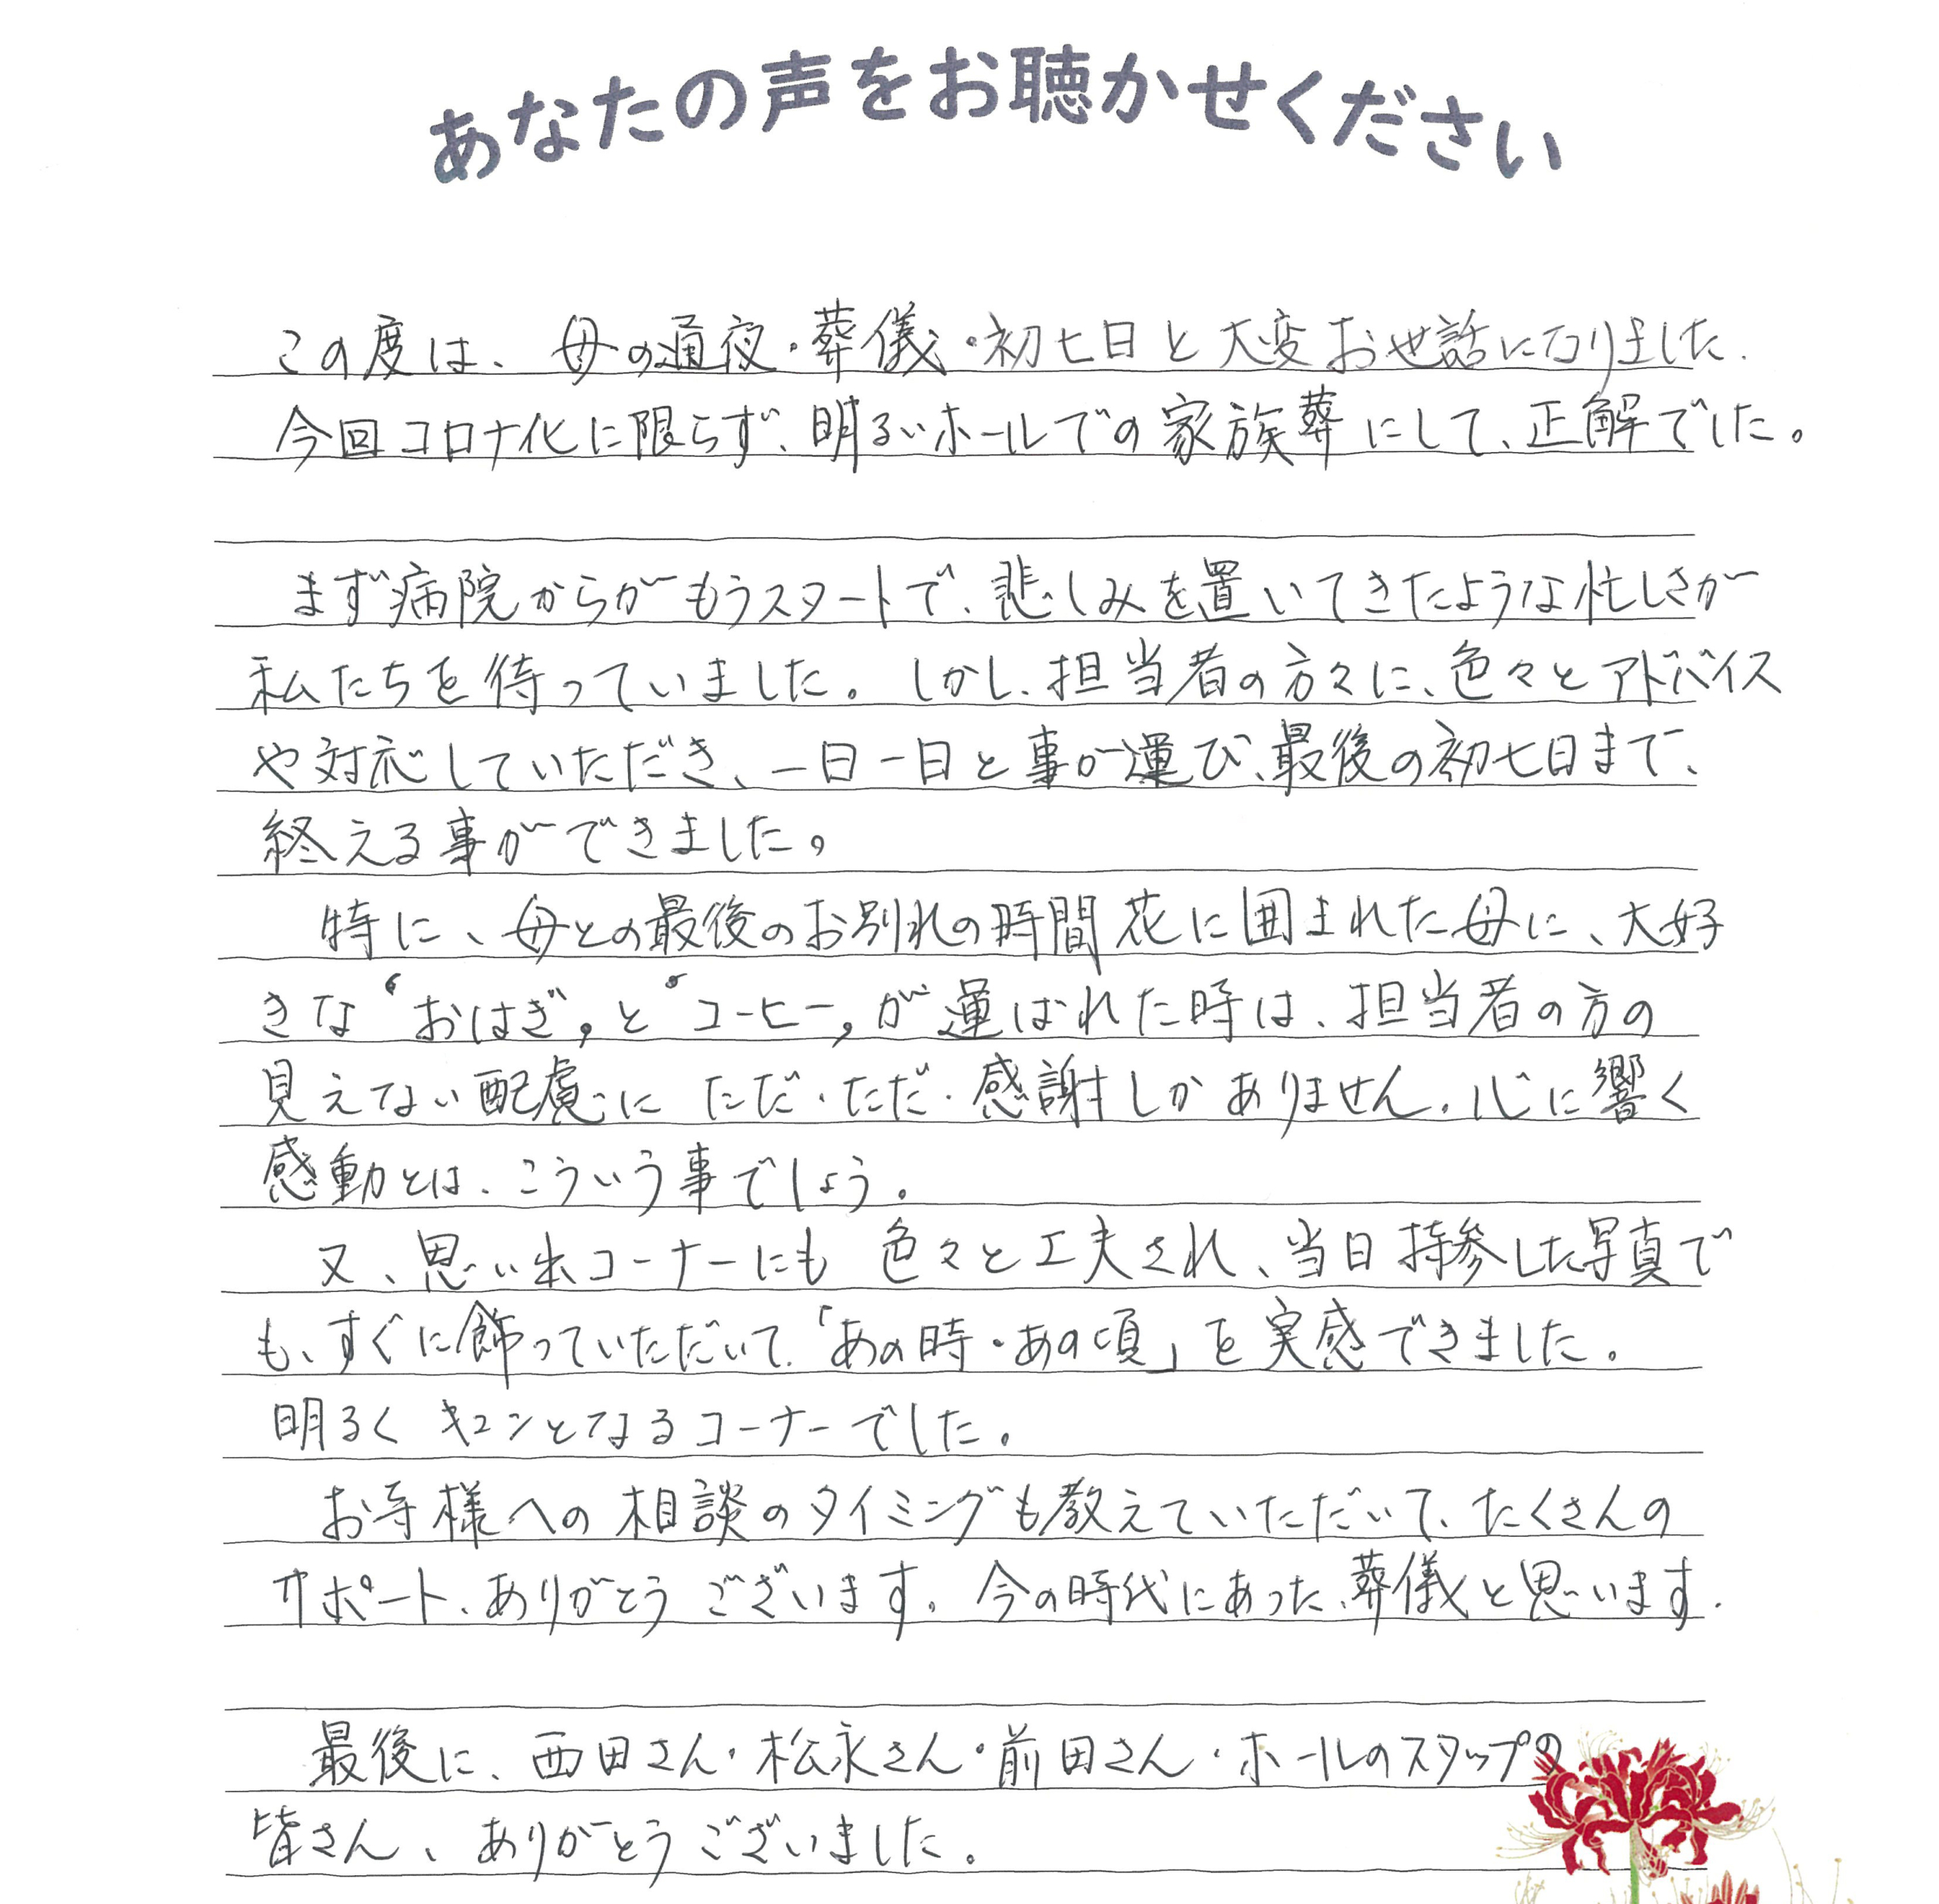 あなたの声をお聴かせください
この度は、母の通夜・葬儀・初七日と大変お世話になりました.
今回コロナ化に限らず、明るいホールでの家族葬にして、正解でした。
まず病院からがもうスタートで、悲しみを置いてきたような忙しさが
私たちを待っていました。しかし、担当者の方々に、色々とアドバイス
や対応していただき、一日一日と事が運び、最後の初七日まで、
終える事ができました。
特に、母との最後のお別れの時間 花に囲まれた母に、大好
きな“おはぎ„と“コーヒー„が運ばれた時は、担当者の方の
見えない配慮に ただ・ただ・感謝しかありません。心に響く
感動とは、こういう事でしょう。
又、思い出コーナーにも 色々と工夫され、当日持参した写真で
も、すぐに飾っていただいて.「あの時・あの頃」を実感できました。
明るく キュンとなるコーナーでした。
お寺様への相談のタイミングも教えていただいて、たくさんの
サポート、ありがとうございます。今の時代にあった、葬儀と思います.
最後に、西田さん・松永さん・前田さん・ホールのスタップの
皆さん、ありがとうございました。